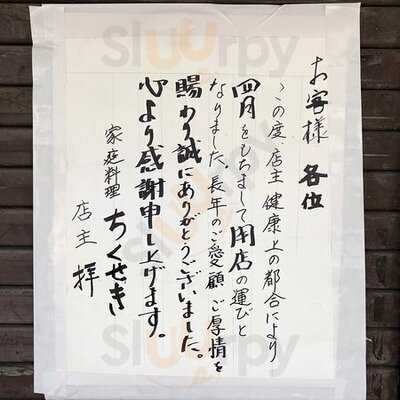 お客様 各位
この度、店主 健康上の都合により
四月をもちまして閉店の運びと
なりました。長年のご愛顧 ご厚情を
賜わり誠にありがとうございました。
心より感謝申し上げます。
家庭料理 ちくせき
店主 拝
Sluurpy
Sluurpy